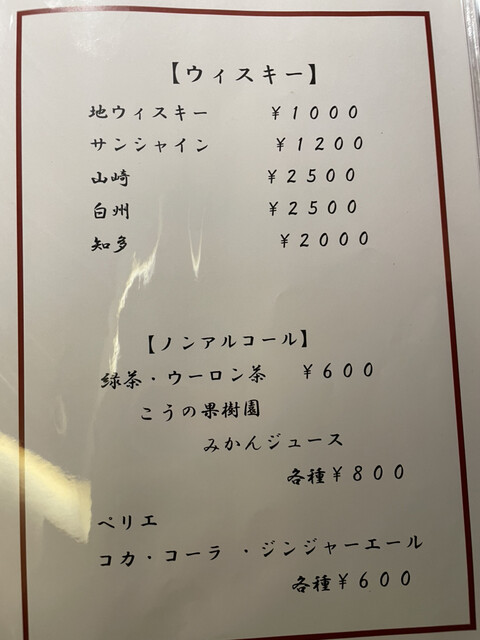 【ウィスキー】
地ウィスキー ￥１０００
サンシャイン ￥１２００
山崎 ￥２５００
白州 ￥２５００
知多 ￥２０００
【ノンアルコール】
緑茶・ウーロン茶 ￥６００
こうの果樹園
みかんジュース
各種￥８００
ペリエ
コカ・コーラ ・ジンジャーエール
各種￥６００